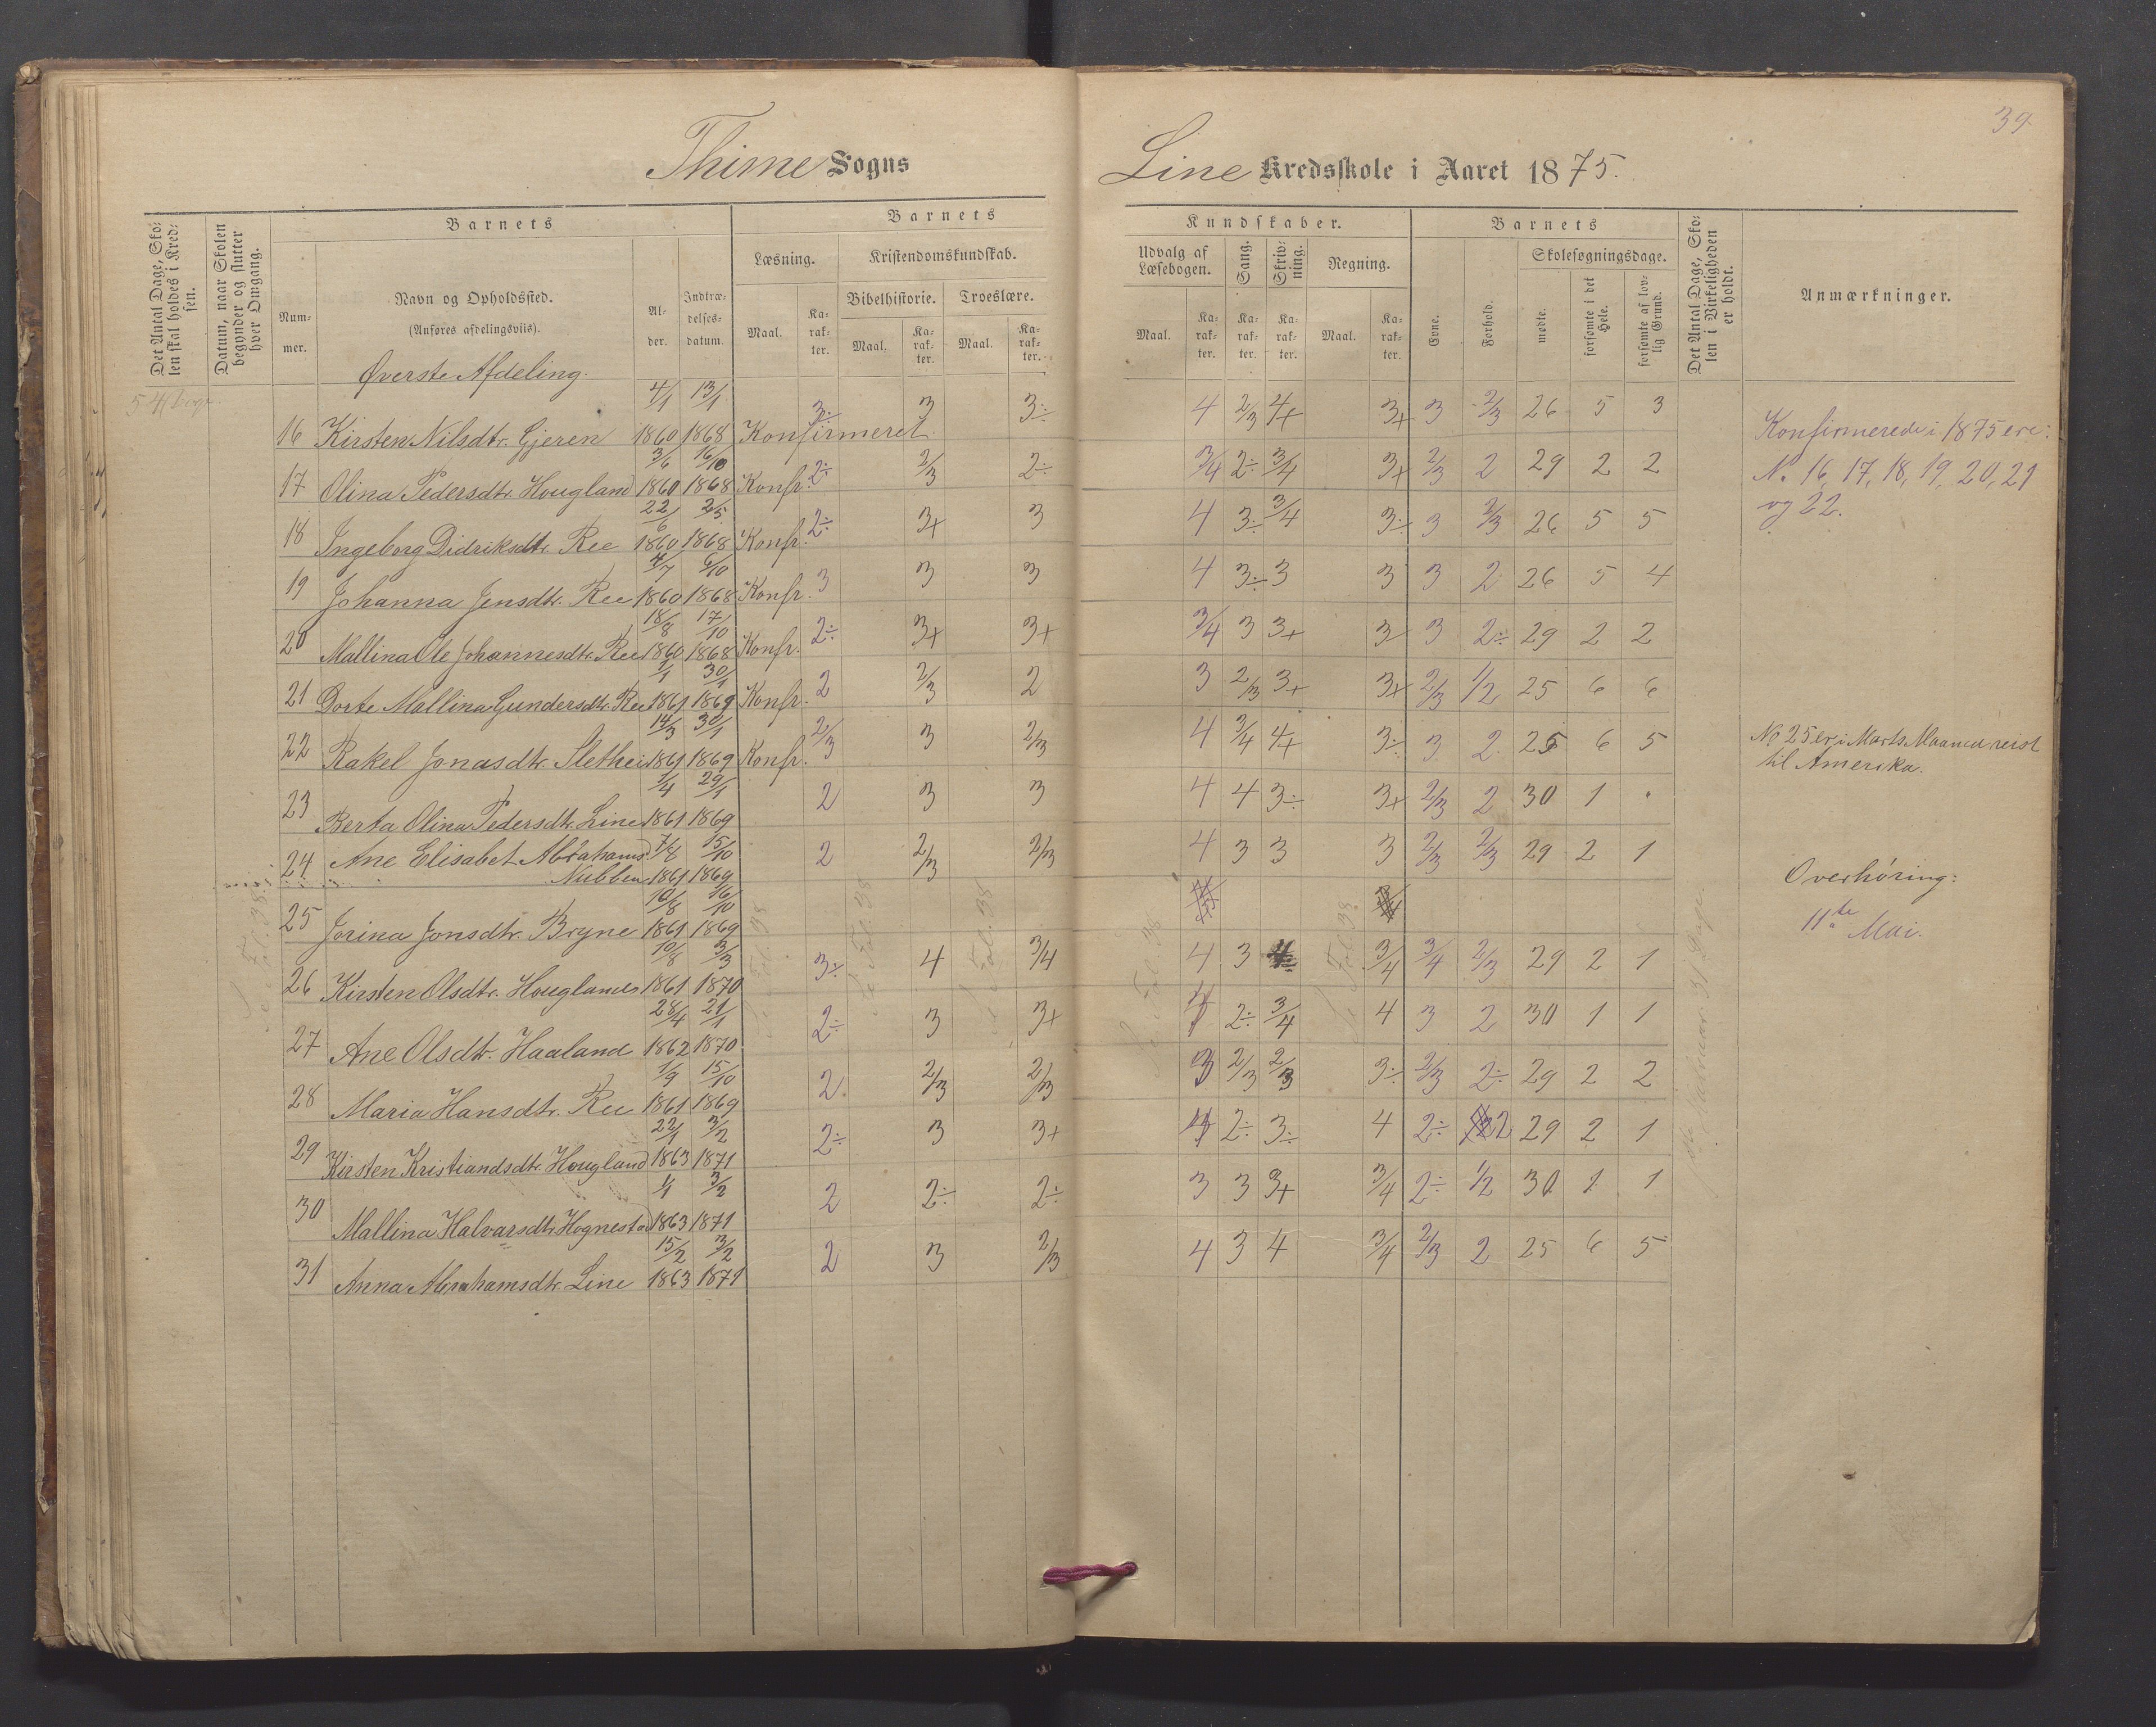 39
Thime Sogns
Line Kredsskole i Aaret 1875.
Det Antal Dage, Sko-
len skal holdes i Kred-
sen.
Datum, naar Skolen
begynder og slutter
hver Omgang.
Barnets
Num-
mer.
Navn og Opholdssted.
(Anføres afdelingsviis).
Al-
der.
Indtræ-
delses-
datum.
Barnets
Læsning.
Kristendomskundskab.
Bibelhistorie.
Troeslære.
Maal.
Ka-
rak-
ter.
Maal.
Ka-
rak-
ter.
Maal.
Ka-
rak-
ter.
Kundskaber.
Udvalg af
Læsebogen.
Sang.
Skriv-
ning.
Regning.
Maal.
Ka-
rak-
ter.
Ka-
rak-
ter.
Ka-
rak-
ter.
Maal.
Ka-
rak-
ter.
Barnets
Evne.
Forhold.
Skolesøgningsdage.
mødte.
forsømte i det
Hele.
forsømte af lov-
lig Grund.
Det Antal Dage, Sko-
len i Virkeligheden
er holdt.
Anmærkninger.
Øverste Afdeling.
54 Dage
16 Kirsten Nilsdtr. Gjeren 4/1 1860 13/1 1868 Konfirmeret 3÷ 3 3÷ 4 2/3 4+ 3+ 3 2/3 26 5 3
17 Olina Pedersdtr. Hougland 3/6 1860 16/10 1868 Konfr. 2÷ 2/3 2÷ 3/4 2÷ 3/4 3+ 2/3 2 29 2 2
18 Ingeborg Didriksdtr. Ree 22/6 1860 2/5 1868 Konfr. 2÷ 3+ 3 4 3÷ 3/4 3÷ 3 2/3 26 5 5
19 Johanna Jensdtr. Ree 4/7 1860 6/10 1868 Konfr. 3 3 3 4 3÷ 3 3 3 2 26 5 4
20 Mallina Ole Johannesdtr. Ree 18/8 1860 17/10 1868 Konfr. 2÷ 3+ 3+ 3/4 3 3+ 3 3 2÷ 29 2 2
21 Dorte Mallina Gundersdtr. Ree 1/1 1861 30/1 1869 Konfr. 2 2/3 2 3 2/3 3+ 3+ 2/3 1/2 25 6 6
22 Rakel Jonasdtr. Slethei 14/3 1861 30/1 1869 Konfr. 2/3 3 2/3 4 3/4 4+ 3÷ 3 2 25 6 5
23 Berta Olina Pedersdtr. Line 1/4 1861 29/1 1869 2 3 3 4 4 3÷ 3+ 2/3 2 30 1 .
24 Ane Elisabet Abrahamsd.
Nubben 1861 15/10 1869 2 2/3 2/3 4 3 3 3 2/3 2/3 29 2 1
25 Jorina Jonsdtr. Bryne 10/8 1861 16/10 1869
26 Kirsten Olsdtr. Hougland 10/8 1861 3/3 1870 3÷ 4 3/4 4 3 4 3/4 3/4 2/3 29 2 1
27 Ane Olsdtr. Haaland 28/4 1862 21/1 1870 2÷ 3 3+ 2÷ 3/4 4 3 2 30 1 1
28 Maria Hansdtr. Ree 1/9 1861 15/10 1869 2. 2/3 2/3 3 2/3 2/3 3÷ 2/3 2÷ 29 2 2
29 Kirsten Kristiandsdtr. Hougland 22/1 1863 3/2 1871 2÷ 3 3+ 4 2÷ 3÷ 4 2÷ 2 29 2 1
30 Mallina Halvarsdtr. Hognestad 1863 3/2 1871 2 2÷ 2÷ 3 3 3+ 3/4 2÷ 1/2 30 1 1
31 Anna Abrahamsdtr. Line 15/2 1863 3/2 1871 2 3 2/3 4 3 4 3/4 2/3 2 25 6 5
Se Fol. 38
Se Fol. 38
Se Fol. 38
Se Fol. 38
Se Fol. 38
Se Fol. 38
31 Dage
Konfirmerede i 1875 ere:
No 16, 17, 18, 19, 20, 21
og 22.
No 25 er i Marts Maaned reist
til Amerika.
Overhøring:
11te Mai.